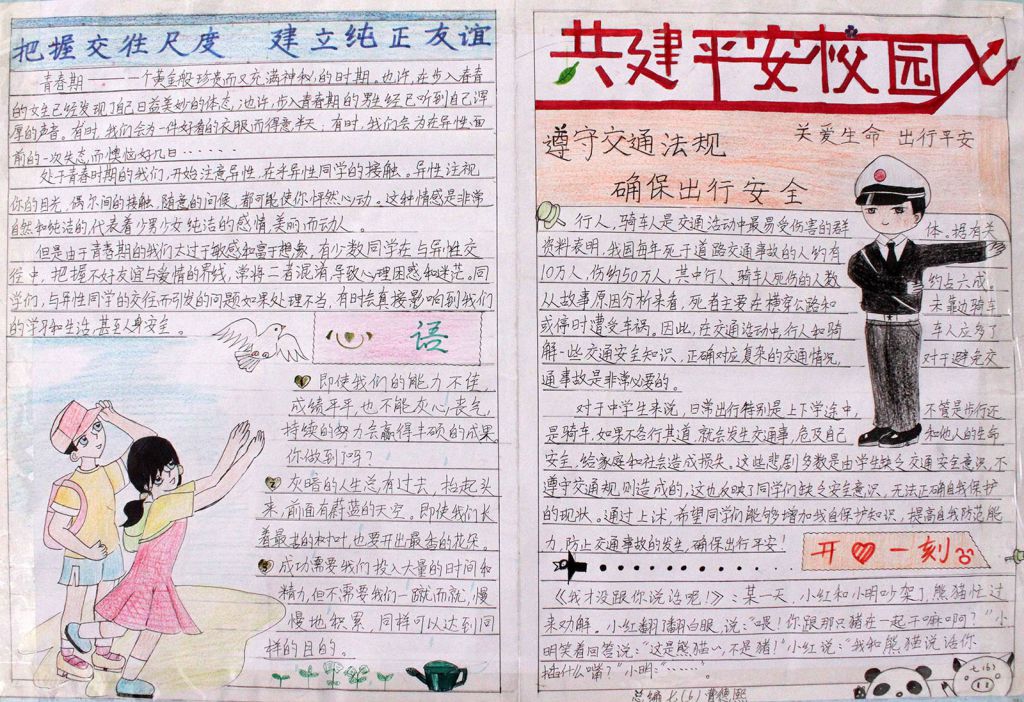 把握交往尺度 建立纯正友谊
青春期———一个黄金般珍贵而又充满神秘的时期。也许，在步入青春
的女生已经发现了自己日益美妙的体态；也许，步入青春期的男生经已听到自己浑
厚的声音。有时，我们会为一件好看的衣服而得意半天，有时，我们会为在异性面
前的一次失态，而懊恼好几日······
处于青春时期的我们，开始注意异性，在乎异性同学的接触。异性注视
你的目光，偶尔间的接触，随意的问候，都可能使你怦然心动。这种情感是非常
自然和纯洁的代表着少男少女纯洁的感情，美丽而动人。
但是由于青春期的我们太过于敏感和富于想象，有少数同学在与异性交
往中，把握不好友谊与爱情的界线，常将二者混淆，导致心理困惑和迷茫。同
学们，与异性同学的交往而引发的问题如果处理不当，有时会直接影响到我们
的学习和生活，甚至人身安全。
语
1 即使我们的能力不佳，
成绩平平，也不能灰心丧气，
持续的努力会赢得丰硕的成果，
你做到了吗？
2 灰暗的人生总有过去，抬起头
来，前面有蔚蓝的天空。即使我们长
着最老的树叶，也要开出最香的花朵。
3 成功需要我们投入大量的时间和
精力，但不需要我们一蹴而就，慢
慢地积累，同样可以达到同
样的目的。
共建平安校园
遵守交通法规
关爱生命 出行平安
确保出行安全
行人，骑车人是交通活动中最易受伤害的群体。据有关
资料表明，我国每年死于道路交通事故的人约有
10万人，伤约50万人，其中行人、骑车人死伤的人数约占六成。
从故事原因分析来看，死者主要在横穿公路和未靠边骑车
或停时遭受车祸。因此，在交通活动中，行人和骑车人应多了
解一些交通安全知识，正确对应复杂的交通情况，对于避免交
通事故是非常必要的。
对于中学生来说，日常出行特别是上下学途中，不管是步行还
是骑车，如果不各行其道，就会发生交通事，危及自己和他人的生命
安全，给家庭和社会造成损失。这些悲剧多数是由学生缺乏交通安全意识，不
遵守交通规则造成的，这也反映了同学们缺乏安全意识，无法正确自我保护
的现状。通过上述，希望同学们能够增加我自保护知识，提高自我防范能
力，防止交通事故的发生，确保出行平安！
开心一刻
《我才没跟你说话呢！》：某一天，小红和小明吵架了，熊猫忙过
来劝解。小红翻了翻白眼，说：“喂！你跟那只猪在一起干嘛啊？”小
明笑着回答说：“这是熊猫～，不是猪！”小红说：“我和熊猫说话你
插什么嘴？”小明：“······”
七(6)
总编：七(6) 曹德熙